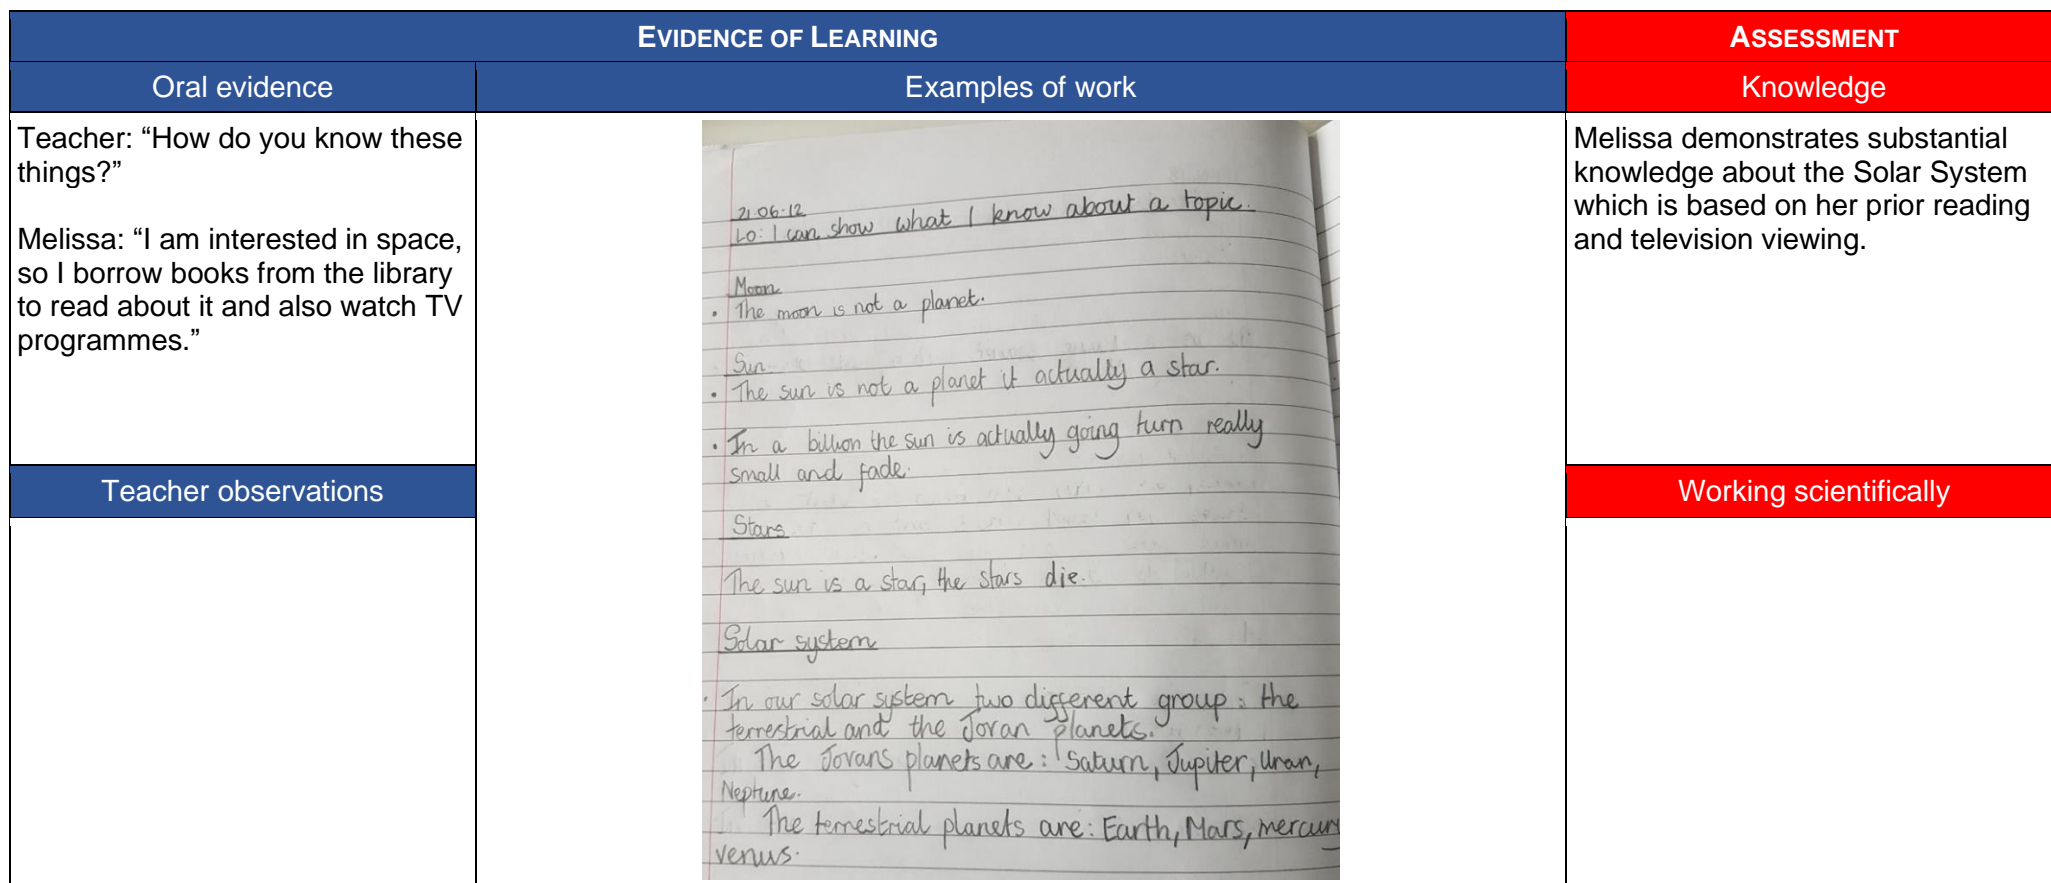 EVIDENCE OF LEARNING
ASSESSMENT
Oral evidence
Examples of work
Knowledge
Teacher: “How do you know these
things?”
Melissa: “I am interested in space,
so I borrow books from the library
to read about it and also watch TV
programmes.”
Teacher observations
21.06.12
LO: I can show what I know about a topic.
Moon
• The moon is not a planet.
Sun
• The sun is not a planet it actually a star.
• In a billion the sun is actually going turn really
small and fade.
Stars
The sun is a star, the stars die.
Solar system
• In our solar system two different group: the
terrestrial and the Jovan planets.
The Jovans planets are: Saturn, Jupiter, Uran,
Neptune.
The terrestrial planets are: Earth, Mars, mercury
venus.
Melissa demonstrates substantial
knowledge about the Solar System
which is based on her prior reading
and television viewing.
Working scientifically